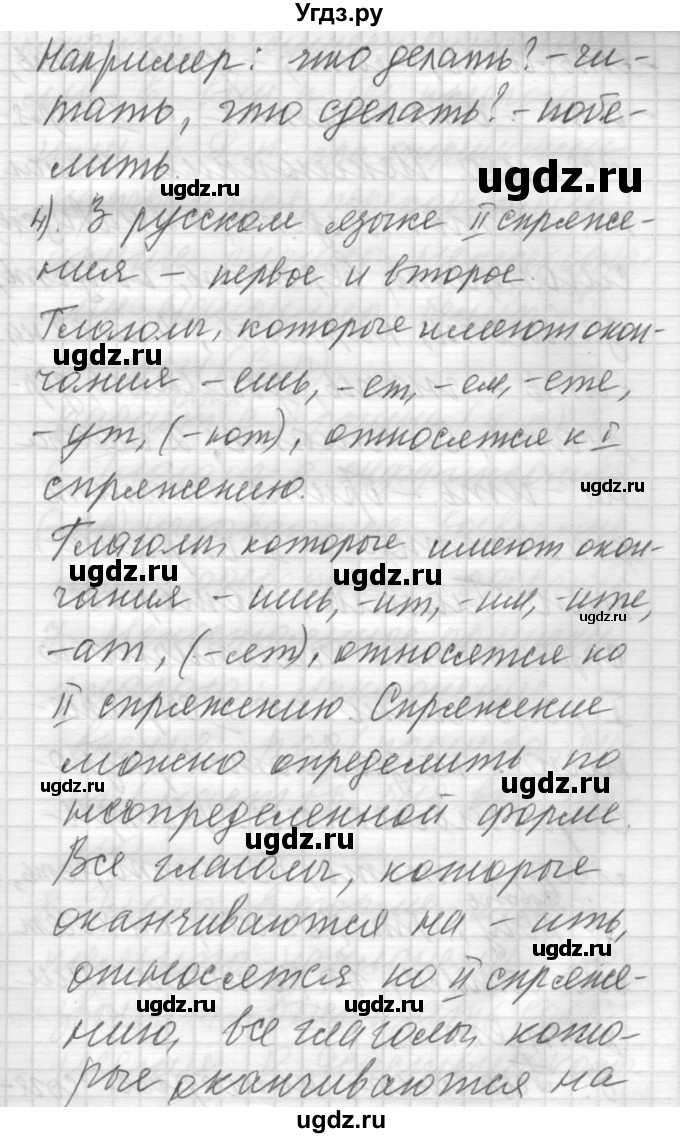 Угдз.ру
Например: что делать? - чи-
тать, что сделать? - побе-
лить.
ugdz.ru
ugdz.ru
4). В русском языке II спряже-
ния - первое и второе.
Глаголы, которые имеют окон-
ugdz.ru
чания -ешь, -ет, -ем, -ете,
-ут, (-ют), относятся к I
спряжению.
ugdz.ru
Глаголы, которые имеют окон-
ugdz.ru
ugdz.ru
чания -ишь, -ит, -им, -ите,
ugdz.ru
-ат, (-ят), относятся ко
II спряжению. Спряжение
можно определить по
ugdz.ru
ugdz.ru
неопределенной форме.
ugdz.ru
Все глаголы, которые
оканчиваются на -ить,
ugdz.ru
относятся ко II спряже-
ugdz.ru
ugdz.ru
нию, все глаголы, кото-
рые оканчиваются на
ugdz.ru